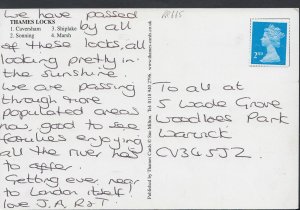 We have passed
THAMES LOCKS
by all
1. Caversham 3. Shiplake
2. Sonning 4. Marsh
of these locks, all
looking pretty in
the sunshine.
We are passing
through more
populated areas
now, good to see
families enjoying
all the river has
to offer.
Getting ever nearer
to London itself!
love J, A, R & T.
Published by Thames Cards
www.thames-cards
2ND
To all at
5 Wade Grove
Woodloes Park
Warwick
CV34 5JZ